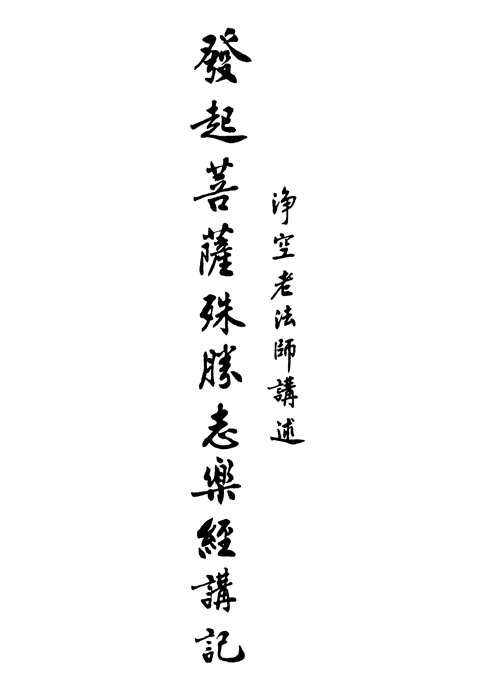 淨空老法師講述
發起菩薩殊勝志樂經講記